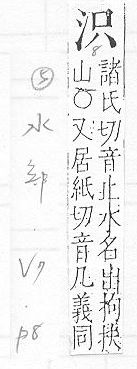 8
諸氏切音止水名出拘扶
山○又居紙切音几義同
⑤ 水部 V7 p8